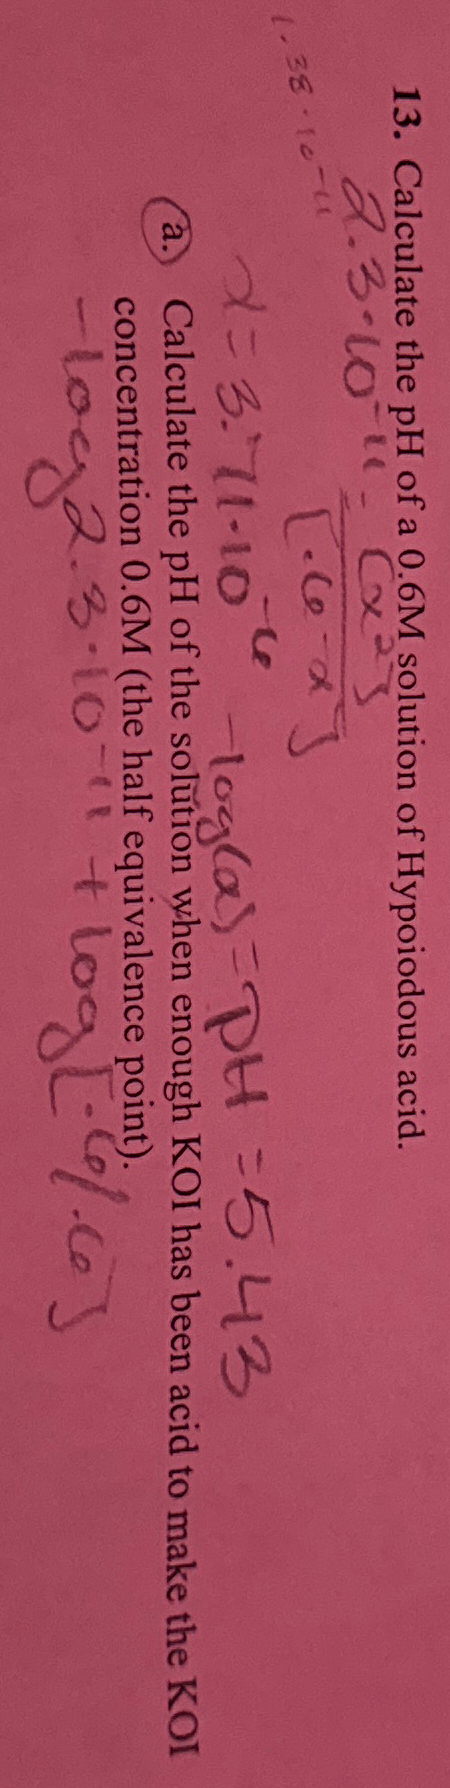 13. Calculate the pH of a 0.6M solution of Hypoiodous acid.
2.3·10⁻¹¹ = (x²)
[.6-x]
1.38·10⁻¹¹
x = 3.71·10⁻⁶ -log(x) = pH = 5.43
a. Calculate the pH of the solution when enough KOI has been acid to make the KOI
concentration 0.6M (the half equivalence point).
-log 2.3·10⁻¹¹ + log[.6/.6]